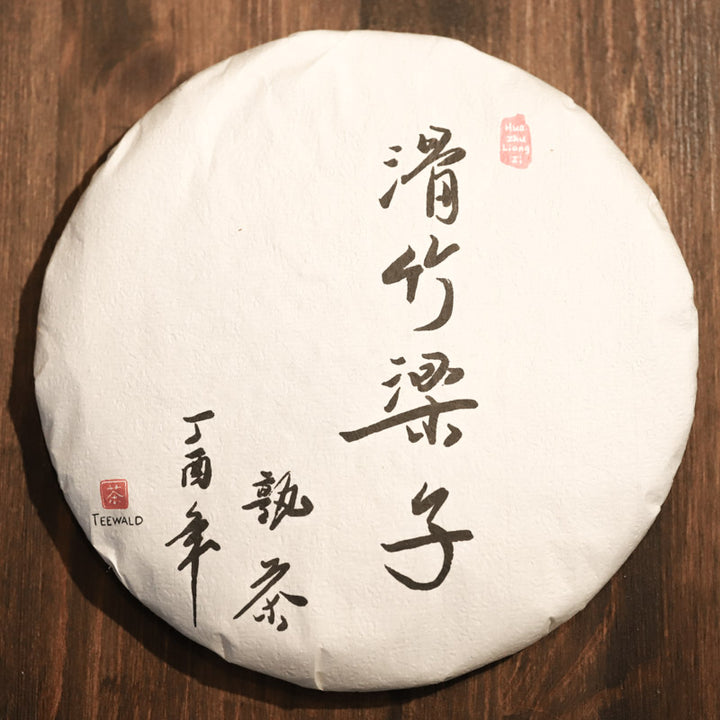 Hua
Zhu
Liang
Zi
滑竹梁子
熟茶
丁酉年
茶
TEEWALD